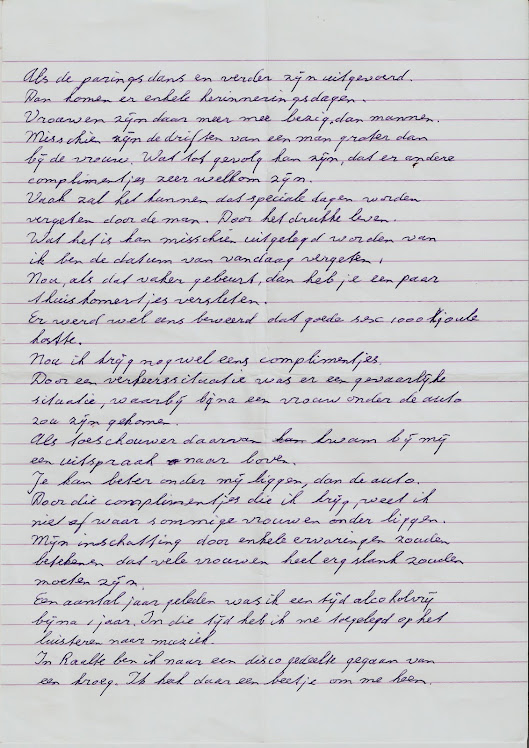 Als de paringsdans en verder zijn uitgevoerd.
Dan komen er enkele herinneringsdagen.
Vrouwen zijn daar meer mee bezig, dan mannen.
Misschien zijn de driften van een man groter dan
bij de vrouw. Wat tot gevolg kan zijn, dat er andere
complimentjes zeer welkom zijn.
Vaak zal het kunnen dat speciale dagen worden
vergeten door de man. Door het drukke leven.
Wat het is kan misschien uitgelegd worden van
ik ben de datum van vandaag vergeten,
Nou, als dat vaker gebeurt, dan heb je een paar
thuiskomertjes versleten.
Er werd wel eens beweerd dat goede sex 1000 Kjoule
kostte.
Nou ik krijg nog wel eens complimentjes.
Door een verkeerssituatie was er een gevaarlijke
situatie, waarbij bijna een vrouw onder de auto
zou zijn gekomen.
Als toeschouwer daarvan kwam bij mij
een uitspraak naar boven.
Je kan beter onder mij liggen, dan de auto.
Door die complimentjes die ik krijg, weet ik
niet of waar sommige vrouwen onder liggen.
Mijn inschatting door enkele ervaringen zouden
betekenen dat vele vrouwen heel erg slank zouden
moeten zijn.
Een aantal jaar geleden was ik een tijd alcoholvrij
bijna 1 jaar. In die tijd heb ik me toegelegd op het
luisteren naar muziek.
In Raalte ben ik naar een disco gedeelte gegaan van
een kroeg. Ik keek daar een beetje om me heen.